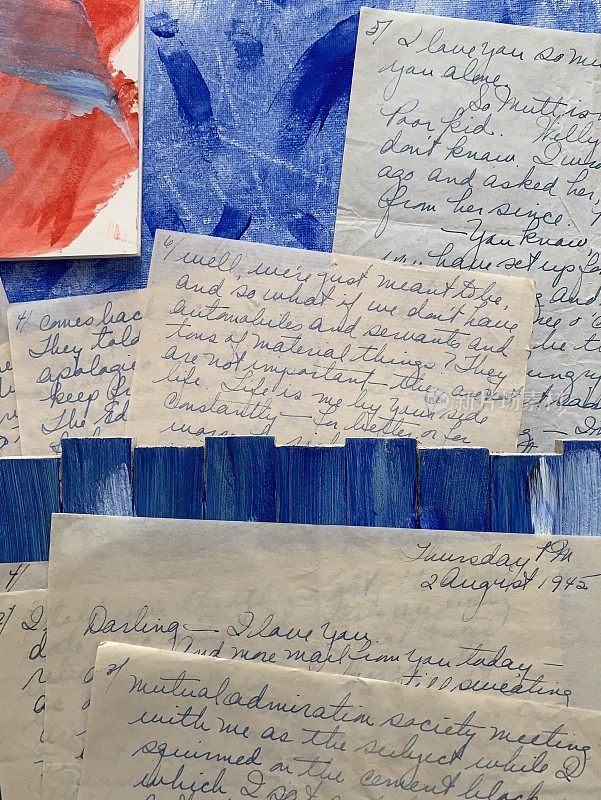 5/ I love you so mu
you alone.
So Mutt is
Poor kid. Willy
don't know. I wro
ago and asked her,
from her since.
—You know,
you have set up for
and
hungry
6/ well, we're just meant to be,
and so what if we don't have
automobiles and servants and
tons of material things? They
are not important — they aren't
life. Life is me by your side
constantly — for better or for
4/ comes bac
They told
apologie
keep fr
The Ed
4/
Thursday PM
2 August 1945
Darling — I love you.
And more mail from you today —
still sweating
2/ I
d
a
3/ mutual admiration society meeting
with me as the subject while I
squirmed on the cement block
which I sat